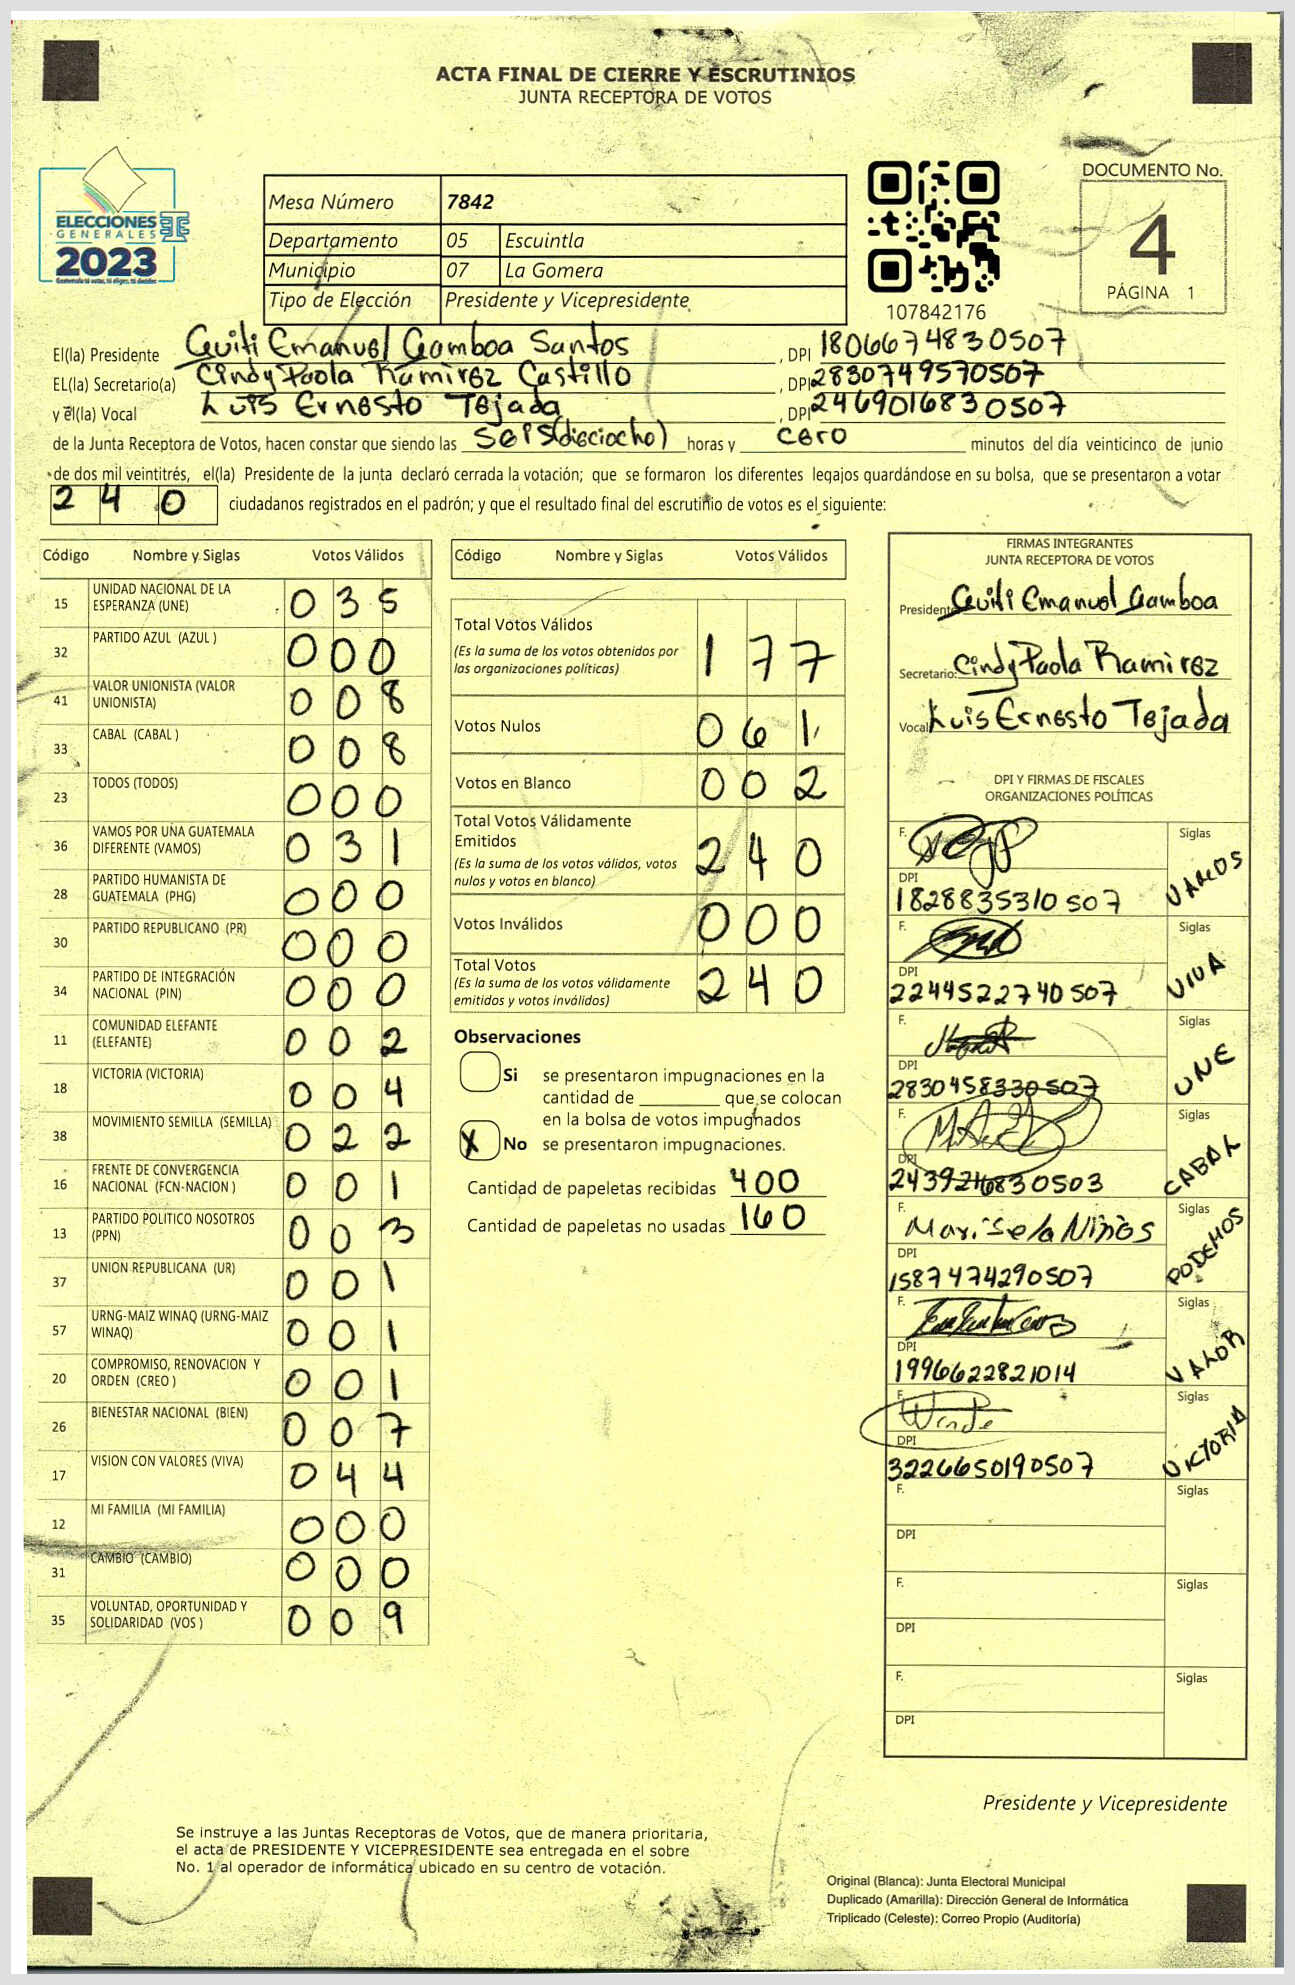 ACTA FINAL DE CIERRE Y ESCRUTINIOS
JUNTA RECEPTORA DE VOTOS
ELECCIONES
GENERALES
2023
Mesa Número 7842
Departamento 05 Escuintla
Municipio 07 La Gomera
Tipo de Elección Presidente y Vicepresidente
107842176
DOCUMENTO No.
4
PÁGINA 1
El(la) Presidente Emanuel Gamboa Santos , DPI 1806674830507
EL(la) Secretario(a) Cindy Paola Ramirez Castillo , DPI 2830749570507
y el(la) Vocal Luis Ernesto Tejada , DPI 2469016830507
de la Junta Receptora de Votos, hacen constar que siendo las seis(dieciocho) horas y cero minutos del día veinticinco de junio
de dos mil veintitrés, el(la) Presidente de la junta declaró cerrada la votación; que se formaron los diferentes legajos guardándose en su bolsa, que se presentaron a votar
240 ciudadanos registrados en el padrón; y que el resultado final del escrutinio de votos es el siguiente:
Código Nombre y Siglas Votos Válidos
15 UNIDAD NACIONAL DE LA ESPERANZA (UNE) 035
32 PARTIDO AZUL (AZUL ) 000
41 VALOR UNIONISTA (VALOR UNIONISTA) 008
33 CABAL (CABAL ) 008
23 TODOS (TODOS) 000
36 VAMOS POR UNA GUATEMALA DIFERENTE (VAMOS) 031
28 PARTIDO HUMANISTA DE GUATEMALA (PHG) 000
30 PARTIDO REPUBLICANO (PR) 000
34 PARTIDO DE INTEGRACIÓN NACIONAL (PIN) 000
11 COMUNIDAD ELEFANTE (ELEFANTE) 002
18 VICTORIA (VICTORIA) 004
38 MOVIMIENTO SEMILLA (SEMILLA) 022
16 FRENTE DE CONVERGENCIA NACIONAL (FCN-NACION ) 001
13 PARTIDO POLITICO NOSOTROS (PPN) 003
37 UNION REPUBLICANA (UR) 001
57 URNG-MAIZ WINAQ (URNG-MAIZ WINAQ) 001
20 COMPROMISO, RENOVACION Y ORDEN (CREO ) 001
26 BIENESTAR NACIONAL (BIEN) 007
17 VISION CON VALORES (VIVA) 044
12 MI FAMILIA (MI FAMILIA) 000
31 CAMBIO (CAMBIO) 000
35 VOLUNTAD, OPORTUNIDAD Y SOLIDARIDAD (VOS ) 009
Código Nombre y Siglas Votos Válidos
Total Votos Válidos 177
(Es la suma de los votos obtenidos por
las organizaciones políticas)
Votos Nulos 061
Votos en Blanco 002
Total Votos Válidamente
Emitidos 240
(Es la suma de los votos válidos, votos
nulos y votos en blanco)
Votos Inválidos 000
Total Votos 240
(Es la suma de los votos válidamente
emitidos y votos inválidos)
Observaciones
Si se presentaron impugnaciones en la
cantidad de ________ que se colocan
en la bolsa de votos impugnados
X No se presentaron impugnaciones.
Cantidad de papeletas recibidas 400
Cantidad de papeletas no usadas 160
FIRMAS INTEGRANTES
JUNTA RECEPTORA DE VOTOS
Presidente: Emanuel Gamboa
Secretario: Cindy Paola Ramirez
Vocal Luis Ernesto Tejada
DPI Y FIRMAS DE FISCALES
ORGANIZACIONES POLÍTICAS
F. Siglas VAMOS
DPI 1828835310507
F. Siglas VIVA
DPI 2244522740507
F. Siglas UNE
DPI 2830458330507
F. Siglas CABAL
DPI 2439216830503
F. Marisela Siglas PODEMOS
DPI 1587474290507
F. Siglas VALOR
DPI 1996622821014
F. Siglas VICTORIA
DPI 3226650190507
F. Siglas
DPI
F. Siglas
DPI
F. Siglas
DPI
Presidente y Vicepresidente
Se instruye a las Juntas Receptoras de Votos, que de manera prioritaria,
el acta de PRESIDENTE Y VICEPRESIDENTE sea entregada en el sobre
No. 1 al operador de informática ubicado en su centro de votación.
Original (Blanca): Junta Electoral Municipal
Duplicado (Amarilla): Dirección General de Informática
Triplicado (Celeste): Correo Propio (Auditoría)